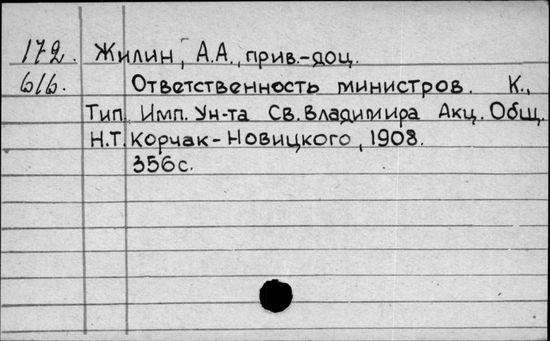 172. Жилин, А.А., прив.-доц.
616. Ответственность министров. К.,
Тип. Имп. Ун-та Св. Владимира Акц. Общ.
Н.Т. Корчак-Новицкого, 1908.
356с.